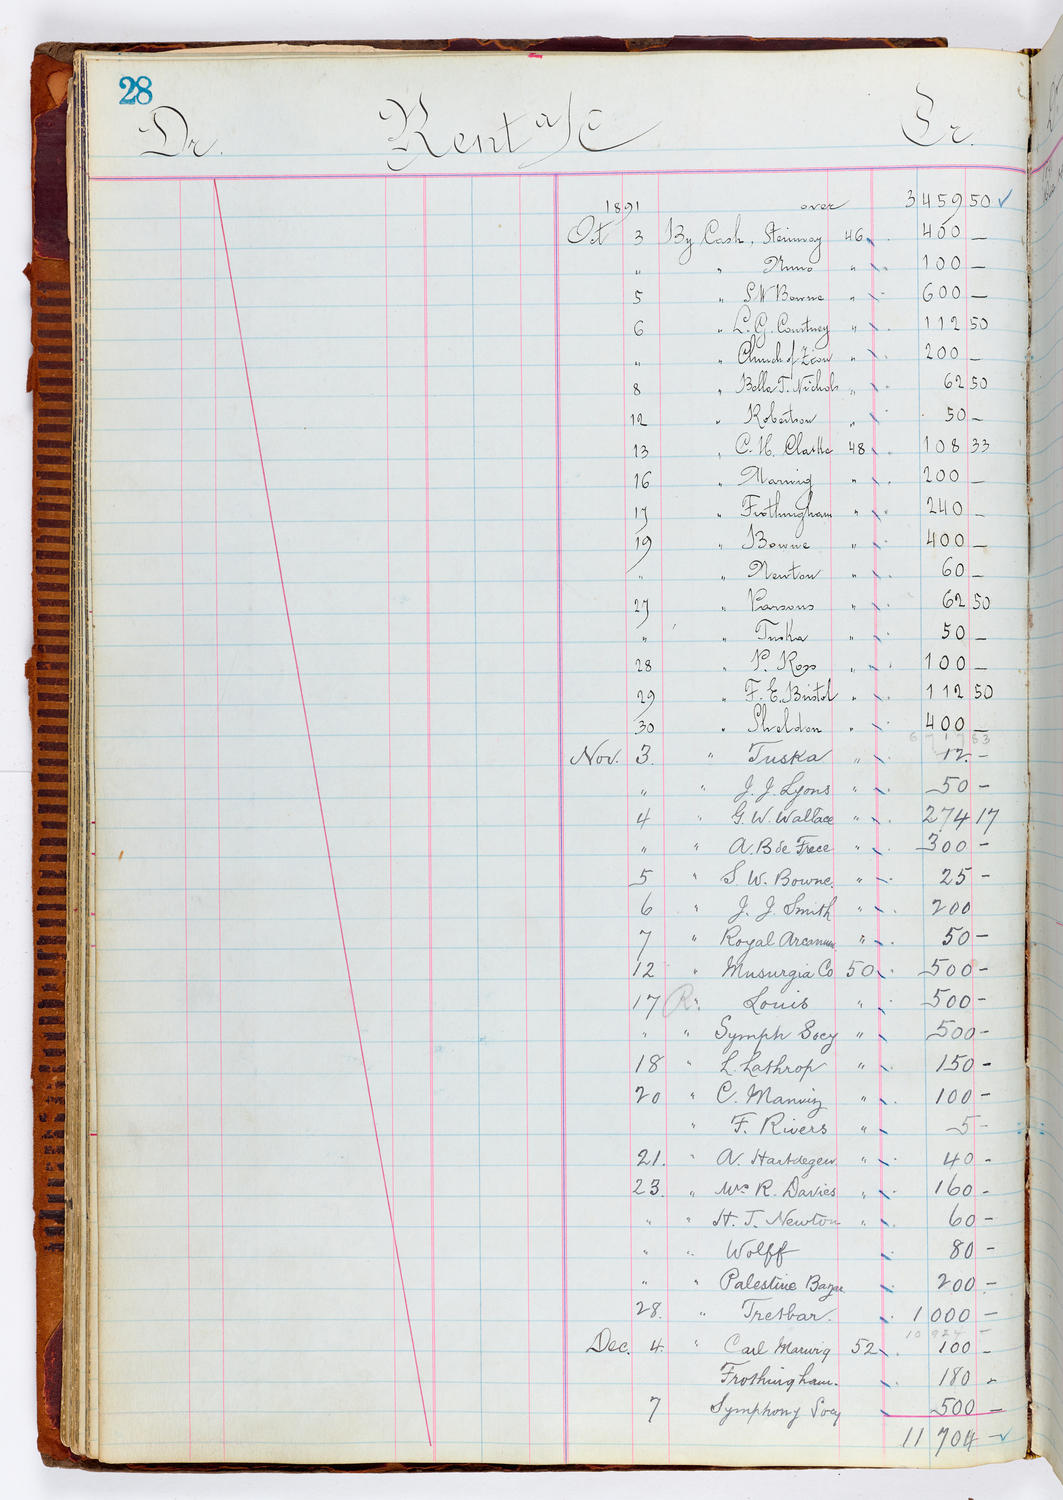 28
Dr. Rent a/c Cr.
1891 over 3 459 50 ✓
Oct 3 By Cash, Steinway 46 400 —
" " Nuno " 100 —
5 " S W Bowne " 600 —
6 " L. G. Courtney " 112 50
" " Church of Zion " 200 —
8 " Bella T. Nichols " 62 50
12 " Robertson " 50 —
13 " C. H. Clarke 48 108 33
16 " Marwig " 200 —
17 " Frothingham " 240 —
19 " Bowne " 400 —
" " Newton " 60 —
27 " Parsons " 62 50
" " Tuska " 50 —
28 " P. Ross " 100 —
29 " F. E. Bristol " 112 50
30 " Sheldon " 400 —
Nov. 3. " Tuska " 12. —
" " J. J. Lyons " 50 —
4 " G. W. Wallace " 274 17
" " A. B de Frece " 300 —
5 " S. W. Bowne. " 25 —
6 " J. J. Smith " 200
7 " Royal Arcanum " 50 —
12 " Musurgia Co 50 500 —
17 " Louis " 500 —
" " Symph Socy " 500 —
18 " L. Lathrop " 150 —
20 " C. Marwig " 100 —
" F. Rivers " 5 —
21. " A. Hartdegen " 40 —
23. " Wm R. Davies " 160 -
" " H. T. Newton " 60 —
" " Wolff 80 —
" " Palestine Bazar 200 —
28. " Tretbar. 1 000 —
10 924 —
Dec. 4. " Carl Marwig 52 100 —
Frothingham. 180 -
7 Symphony Socy 500 —
11 704 — ✓